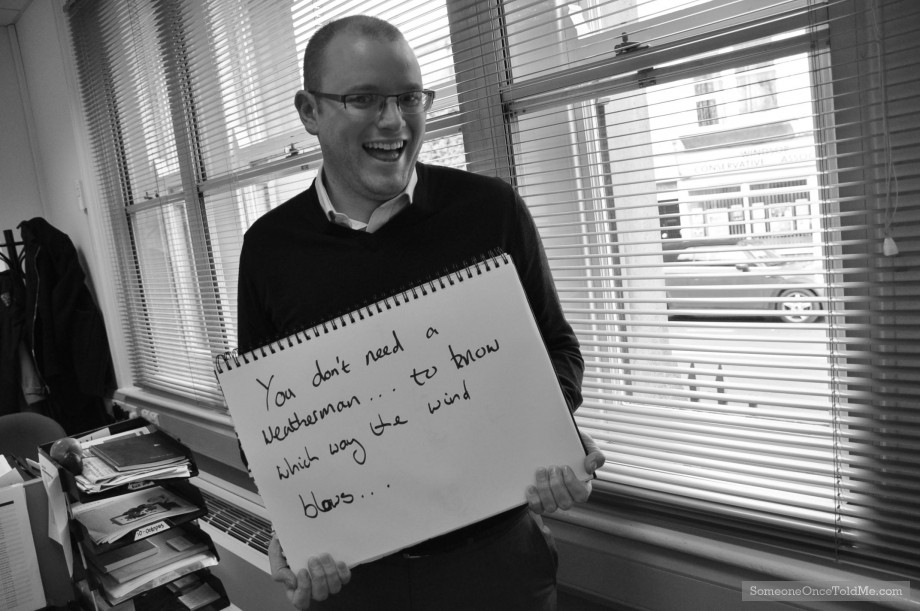 You don't need a
weatherman... to know
which way the wind
blows...
CONSERVATIVE
SomeoneOnceToldMe.com